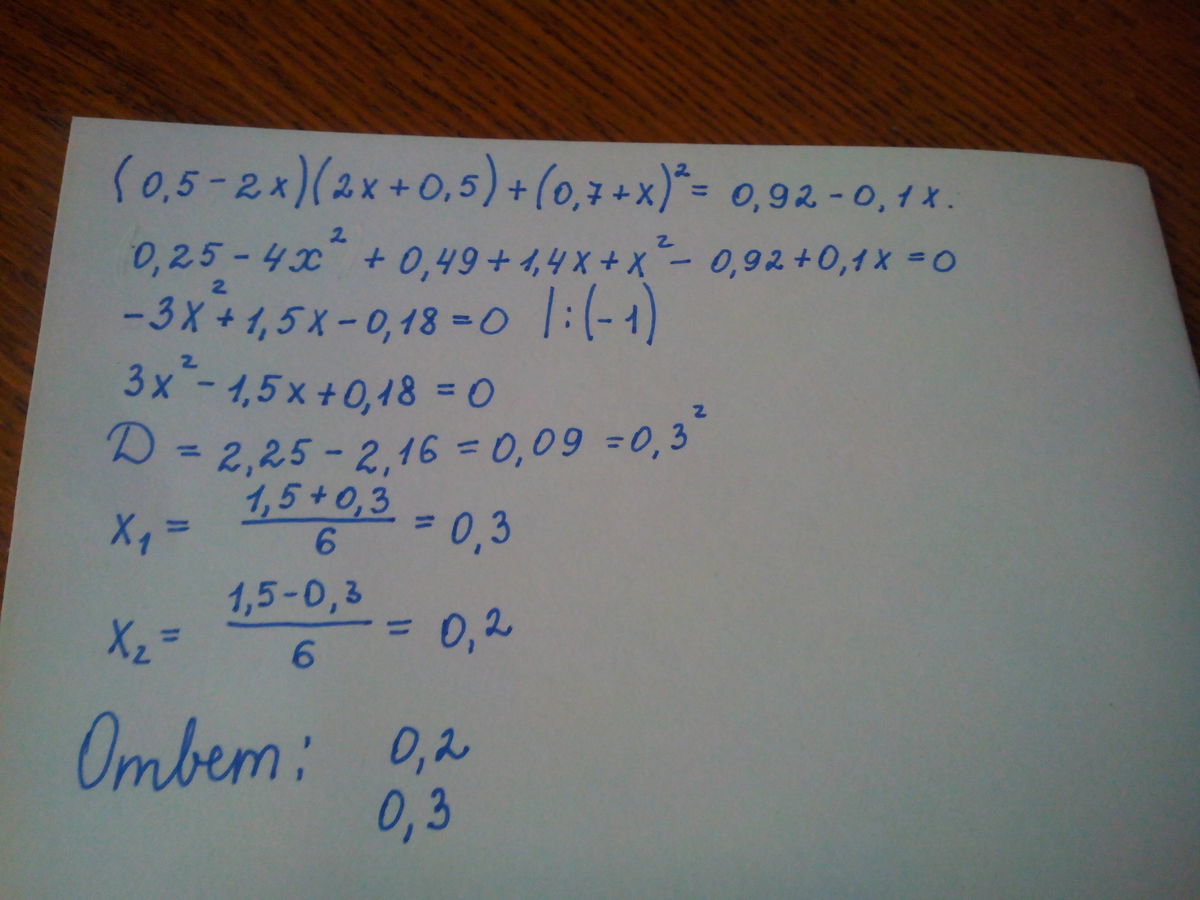 (0,5-2x)(2x+0,5)+(0,7+x)²= 0,92-0,1x.
0,25-4x²+0,49+1,4x+x²-0,92+0,1x=0
-3x²+1,5x-0,18=0 |:(-1)
3x²-1,5x+0,18=0
D = 2,25-2,16=0,09=0,3²
x₁= (1,5+0,3)/6 = 0,3
x₂= (1,5-0,3)/6 = 0,2
Ответ: 0,2
0,3